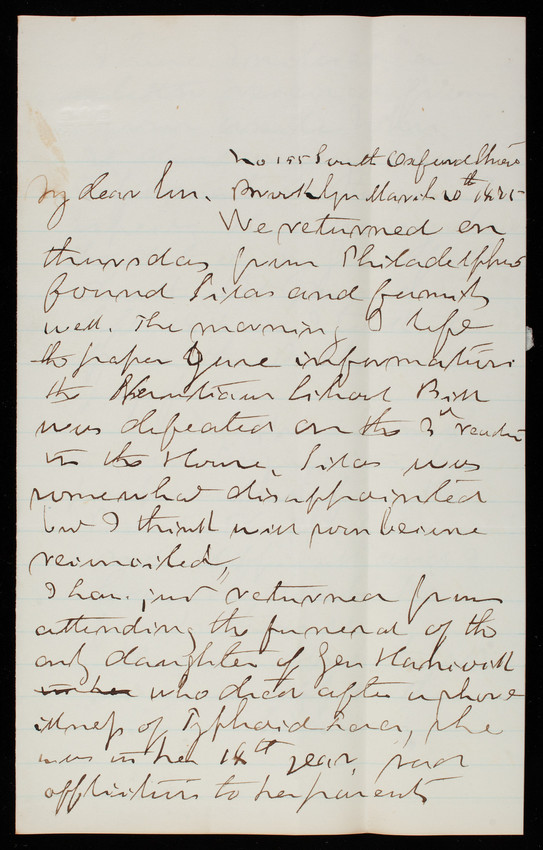 No 155 South Oxford Street
My dear Son. Brooklyn March 10th 1875
We returned on
thursday from Philadelphia
found Silas and family
well. The morning I left
the paper gave information
the School Bill
was defeated on the 3d reading
in the House, Silas was
somewhat disappointed
but I think will soon become
reconciled,
I have just returned from
attending the funeral of the
only daughter of Gen
who died after a short
illness of Typhoid Fever, she
was in her 18th year, sad
affliction to her parents